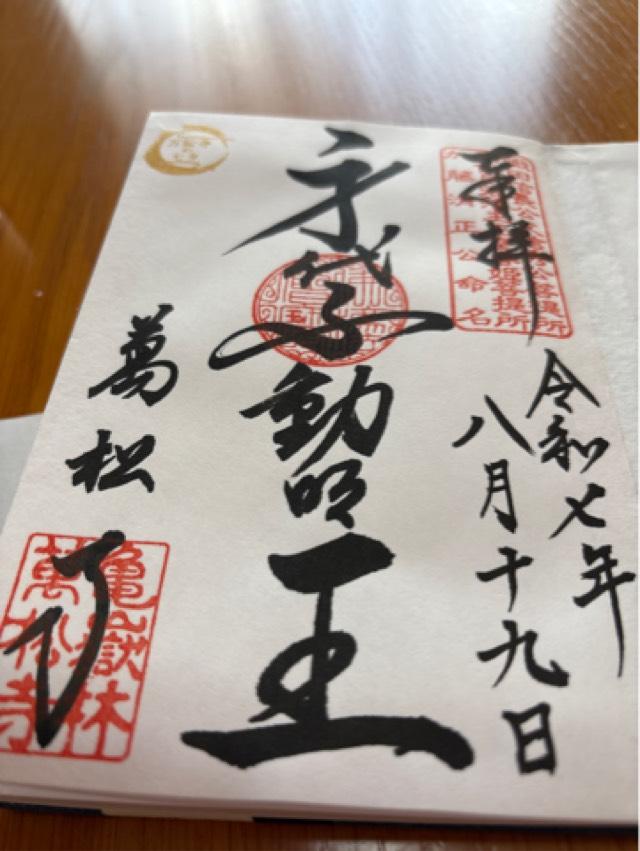 奉拝
加藤清正公命名
令和七年
八月十九日
身代不動明王
萬松寺
亀嶽林
萬松寺